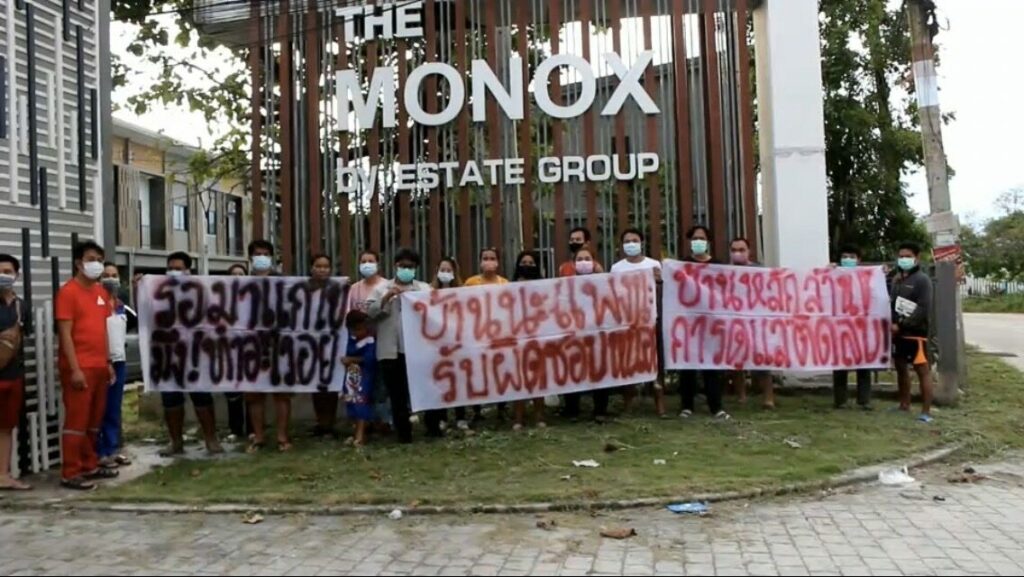 THE
MONOX
by ESTATE GROUP
รอมาแก้ไข
มึง! ทำอะไรอยู่
บ้านนะแพงนะ
รับผิดชอบหน่อย
บ้านหลักล้าน!
การดูแลติดลบ!